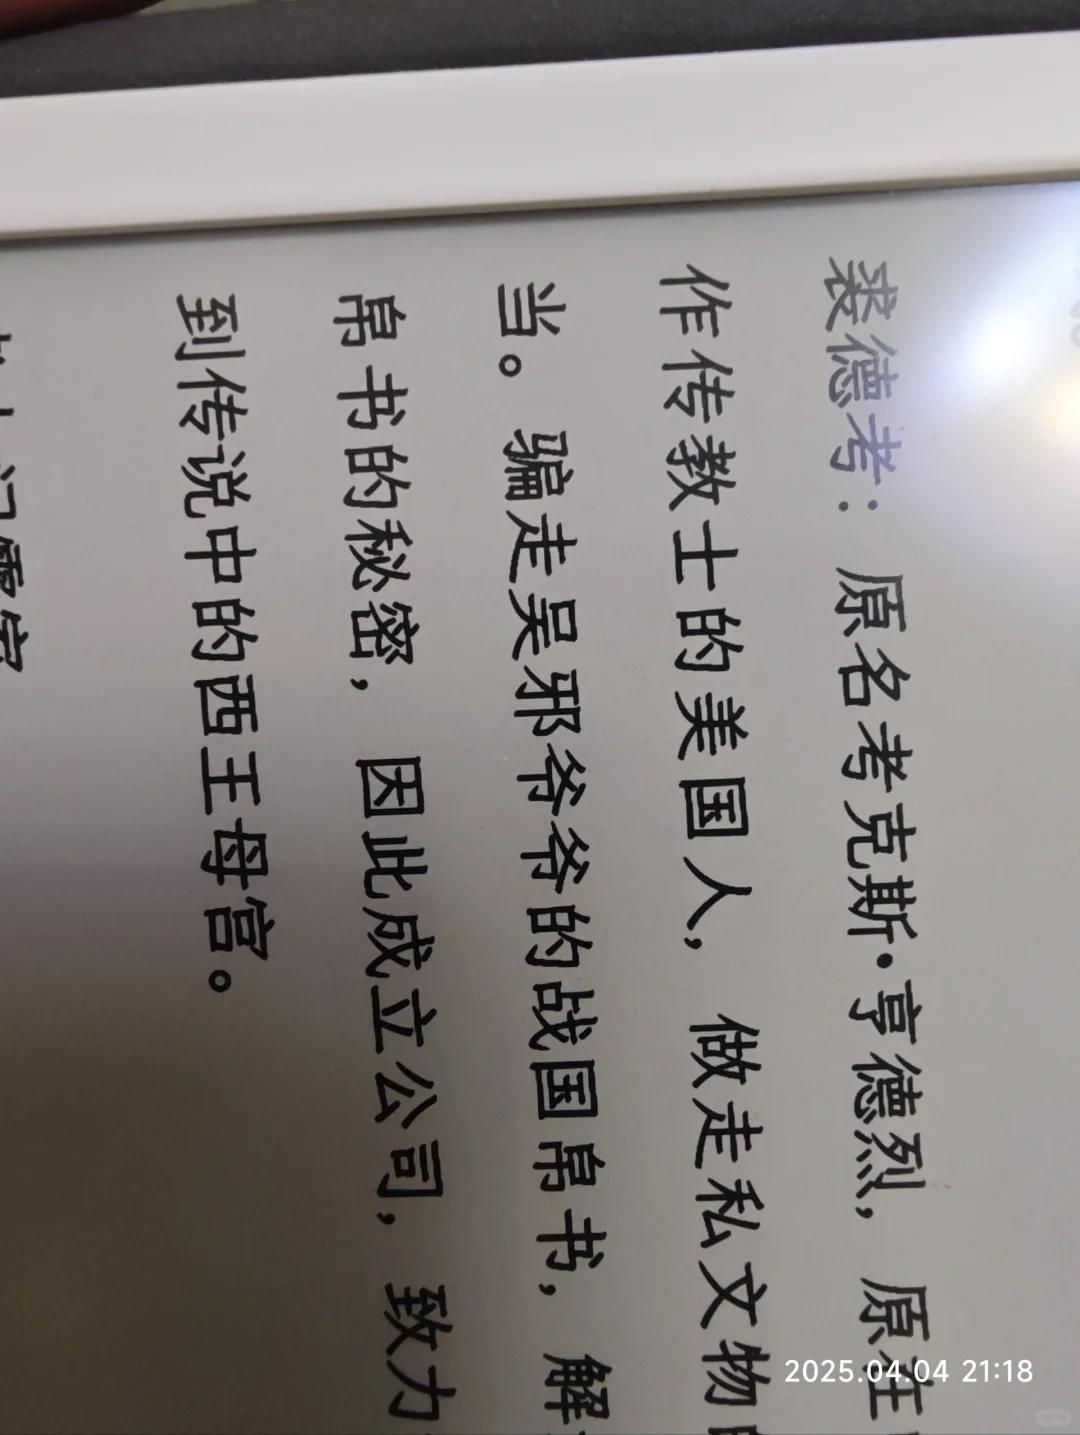 裘德考：原名考克斯·亨德烈，原在
作传教士的美国人，做走私文物
当。骗走吴邪爷爷的战国帛书，解
帛书的秘密，因此成立公司，致力
到传说中的西王母宫。
2025.04.04 21:18